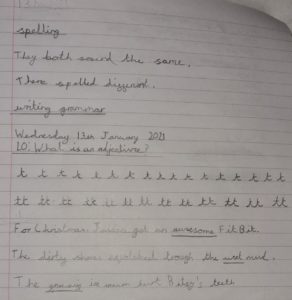 spelling
They both sound the same.
There spelled different.
writing grammar
Wednesday 13th January 2021
LO: What is an adjective?
t t t t t t t t t t t t t t t
tt tt tt tt tt tt tt tt tt tt tt tt tt
For Christmas Jessica got an awesome FitBit.
The dirty shoes squelched trough the mud.
The in mum hurt Betsy's teeth